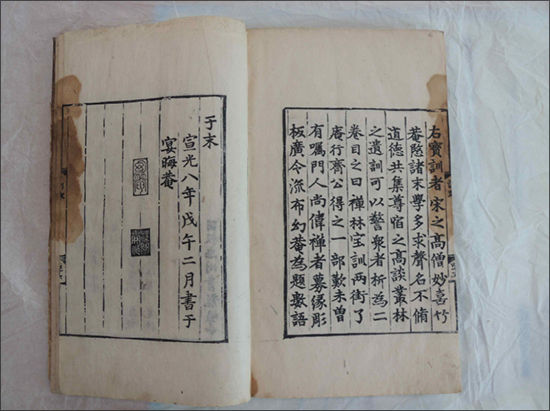 右寶訓者宋之髙僧妙喜竹
菴愍諸末學多求聲名不脩
道德共集尊宿之髙談叢林
之遺訓可以警衆者析為二
卷目之曰禪林宝訓两街了
庵行齊公得之一部歎未曽
有嘱門人尚偉禪者募縁彫
板廣令流布幻菴為題數語
于末
宣光八年戊午二月書于
宴晦菴